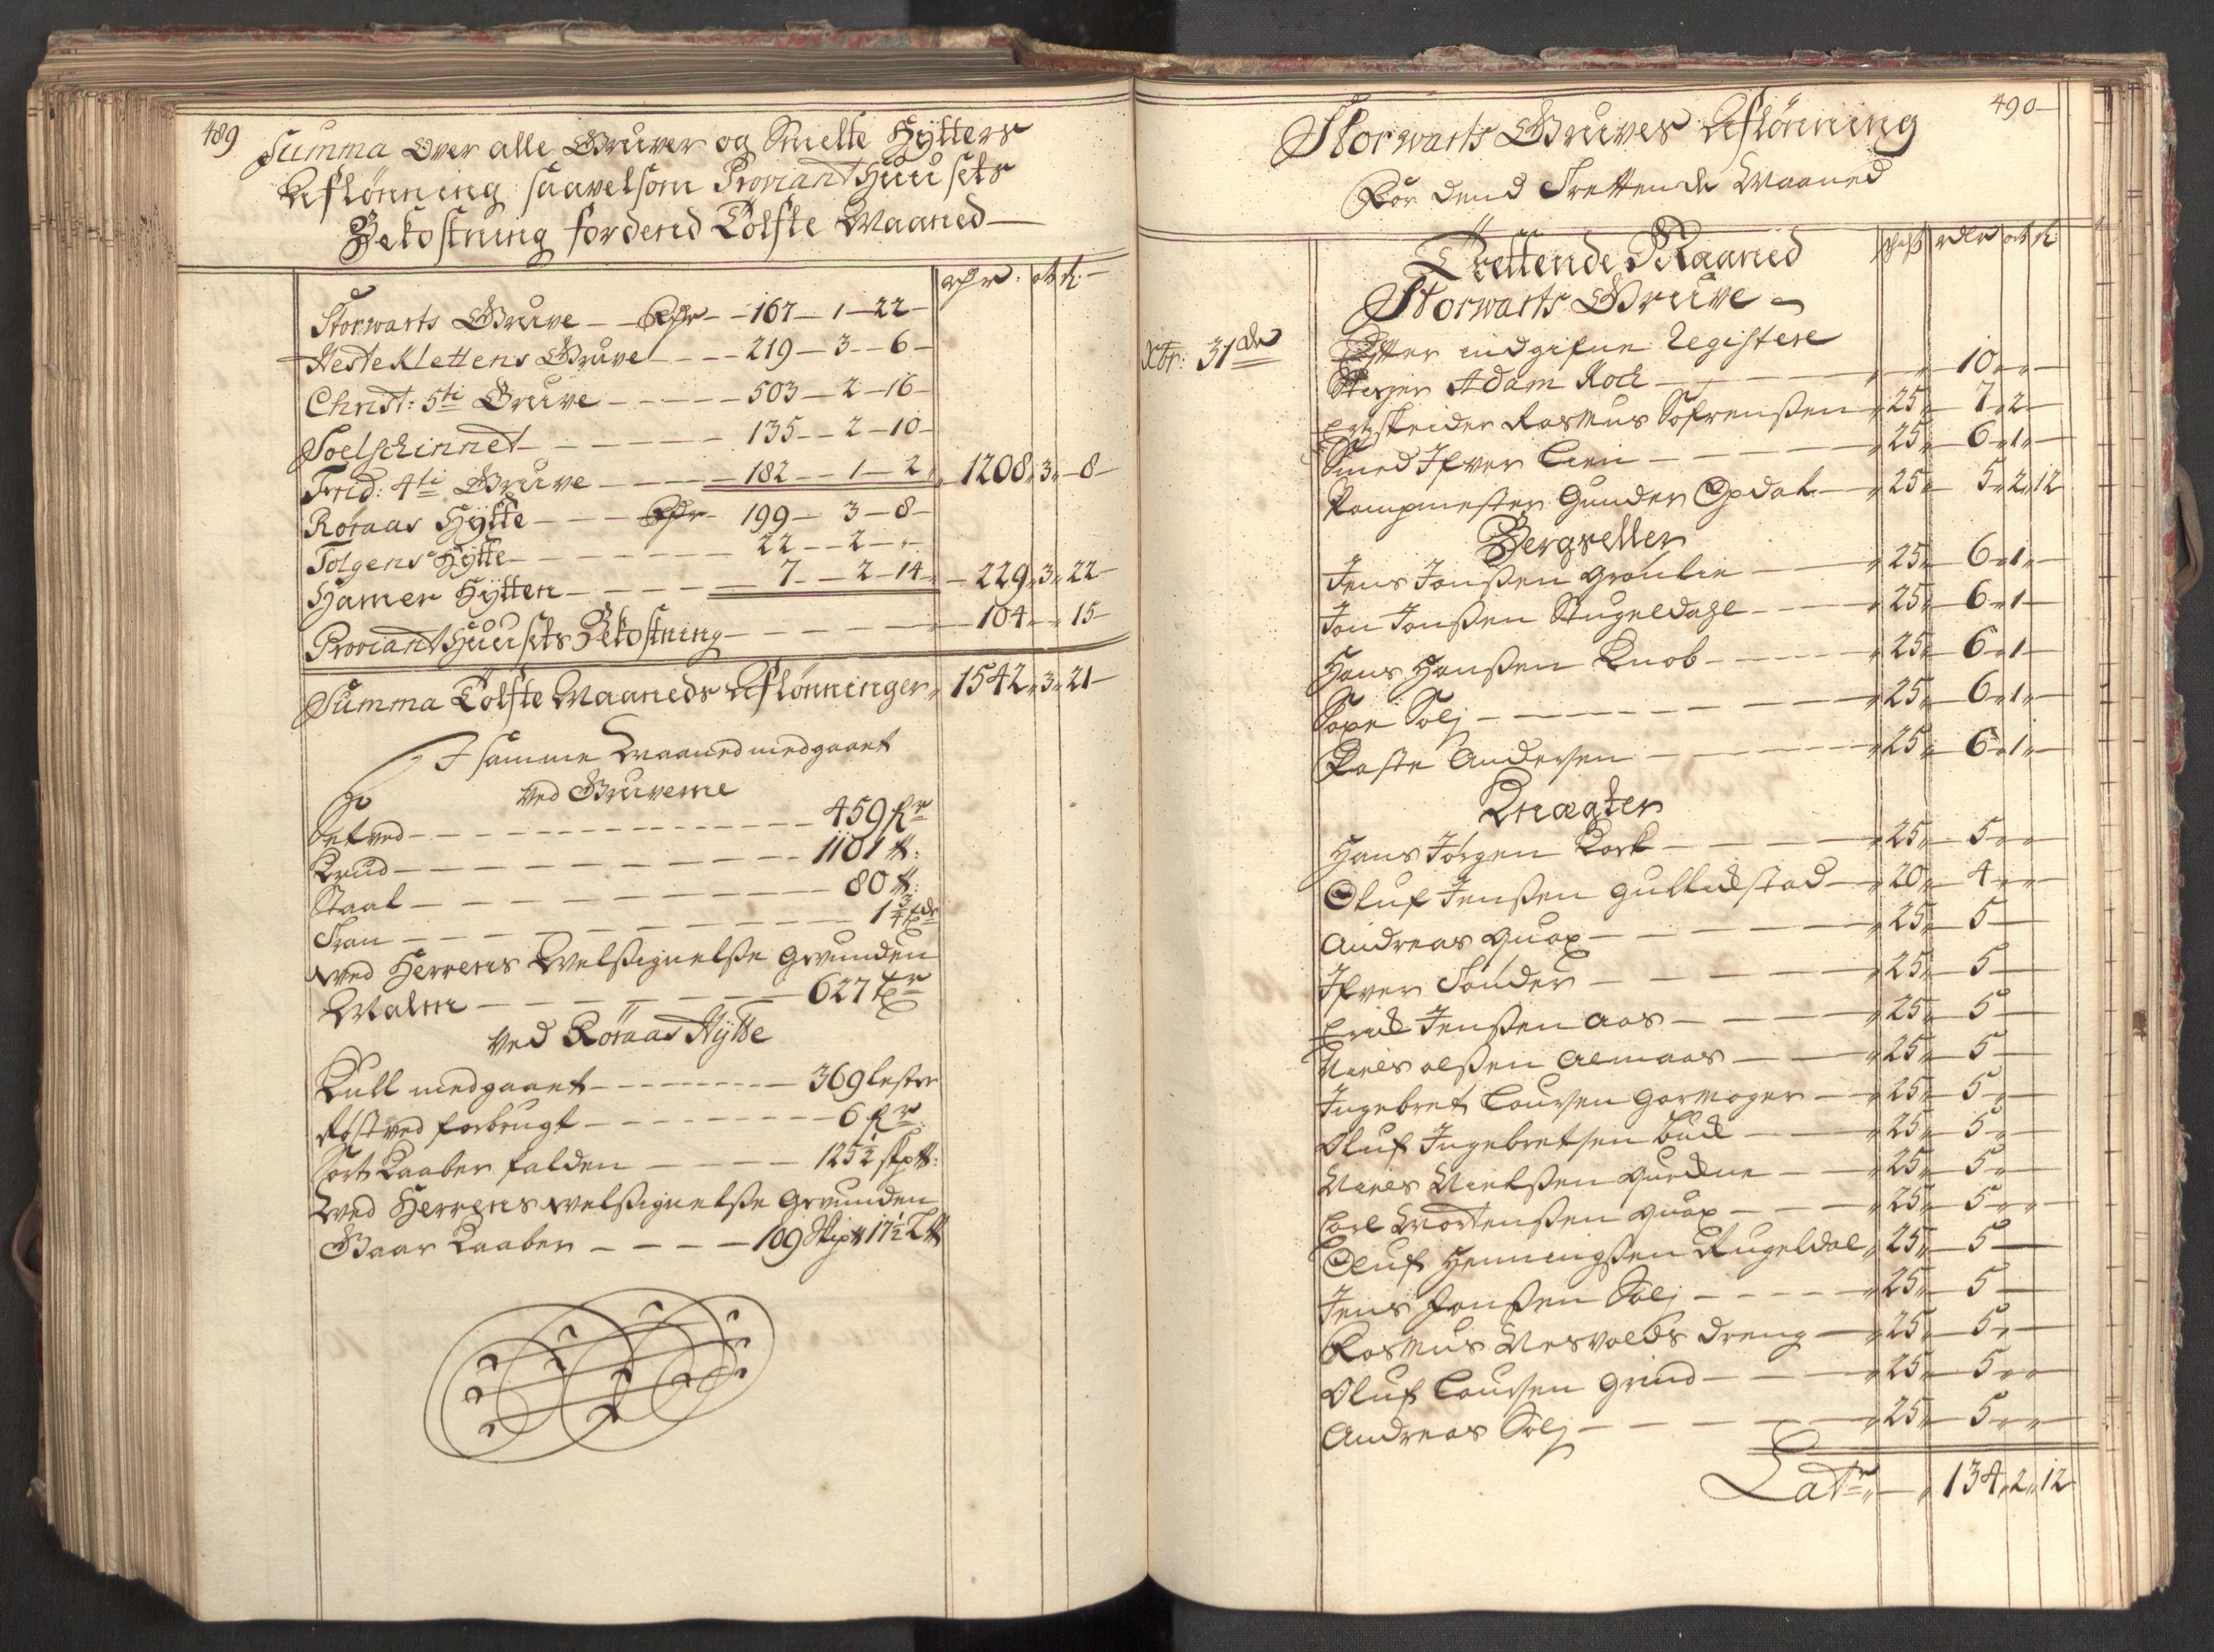 489
Summa Over alle Gruver og Smelte Hytters
Aflönning saavelsom Proviant Huusets
Bekostning for dend Tölfte Maaned
rdr. ort ß.
Storwarts Gruve - - Rdr - 167 - 1 - 22 -
HesteKlettens Gruve - - - 219 - 3 - 6 -
Christ: 5ti Gruve - - - - 503 - 2 - 16 -
Soelschinnet - - - - - 135 - 2 - 10 -
Frid: 4ti Gruve - - - - 182 - 1 - 2 „ 1208 „ 3 „ 8 -
Röraas Hytte - - - Rdr - 199 - 3 - 8 -
Tolgens Hytte - - - - - 22 - 2 - „ -
Hamer Hytten - - - - 7 - 2 - 14 „ - 229 „ 3 „ 22 -
Proviant Huusets Bekostning - - - - - 104 - „ 15 -
Summa Tölfte Maaneds Aflönninger „ 1542 „ 3 „ 21 -
I samme Maaned medgaaet
ved Gruverne
Setved - - - - - - - 459 fr
Krud - - - - - - - 1101 ℔:
Staal - - - - - - - 80 ℔:
Tran - - - - - - - 1 3/4 tdr
Ved Herrens Velsignelsse Grunden
Malm - - - - - 627 tr
Ved Röraas Hytte
Kull medgaaet - - - - - 369 lester
Röstved forbrugt - - - - - 6 fr
Sort Kaaber falden - - - - 125 1/2 skp℔:
Ved Herrens velsignelsse Grunden
Gaar Kaaber - - - - 109 Skip℔ 17 1/2 L℔
490
Storwarts Gruves Aflönning
For dend Trettende Maaned
Trettende Maaned rdr ort ß
Storwarts Gruve
Xbr: 31de Efter indgifne Registere
Stiger Adam Koch - - - 10 „ „
Ertzskeider Rasmus Sofrenssen „ 25 „ 7 „ 2 -
Smed Ifver Lien - - - „ 25 „ 6 „ 1 „
Pompmester Gunder Opdal - „ 25 „ 5 „ 2 „ 12
Bergseller
Jens Jonssen Grönlie - - „ 25 „ 6 „ 1 „
Jon Jonssen Stugeldahl - - „ 25 „ 6 „ 1 -
Hans Hanssen Knob - - - „ 25 „ 6 „ 1 -
Povel Solj - - - - - „ 25 „ 6 „ 1 „
Peste Andersen - - - - „ 25 „ 6 „ 1 „
Knægter
Hans Jörgen Kork - - - „ 25 „ 5 „ „
Oluf Jenssen Gullichstad - „ 20 „ 4 „ „
Andreas Quax - - - - „ 25 „ 5 -
Ifver Tönder - - - - „ 25 „ 5 -
Erich Jenssen Aas - - - „ 25 „ 5 -
Niels Olssen Aemaas - - „ 25 „ 5 -
Ingebret Laursen Gormager - „ 25 „ 5 „
Oluf Ingebretsen Bud - - „ 25 „ 5 „
Niels Nielssen - - „ 25 „ 5 „
Carl Mortenssen Quax - - „ 25 „ 5 „ „
Oluf Henningssen Rugeldal „ 25 „ 5 -
Jens Jonssen Solj - - - „ 25 „ 5 -
Rasmus Nesvolds Dreng - „ 25 „ 5 „
Oluf Laursen Grind - - „ 25 „ 5 „ „
Andreas Solj - - - - „ 25 „ 5 „ „
Latr „ - „ 134 „ 2 „ 12